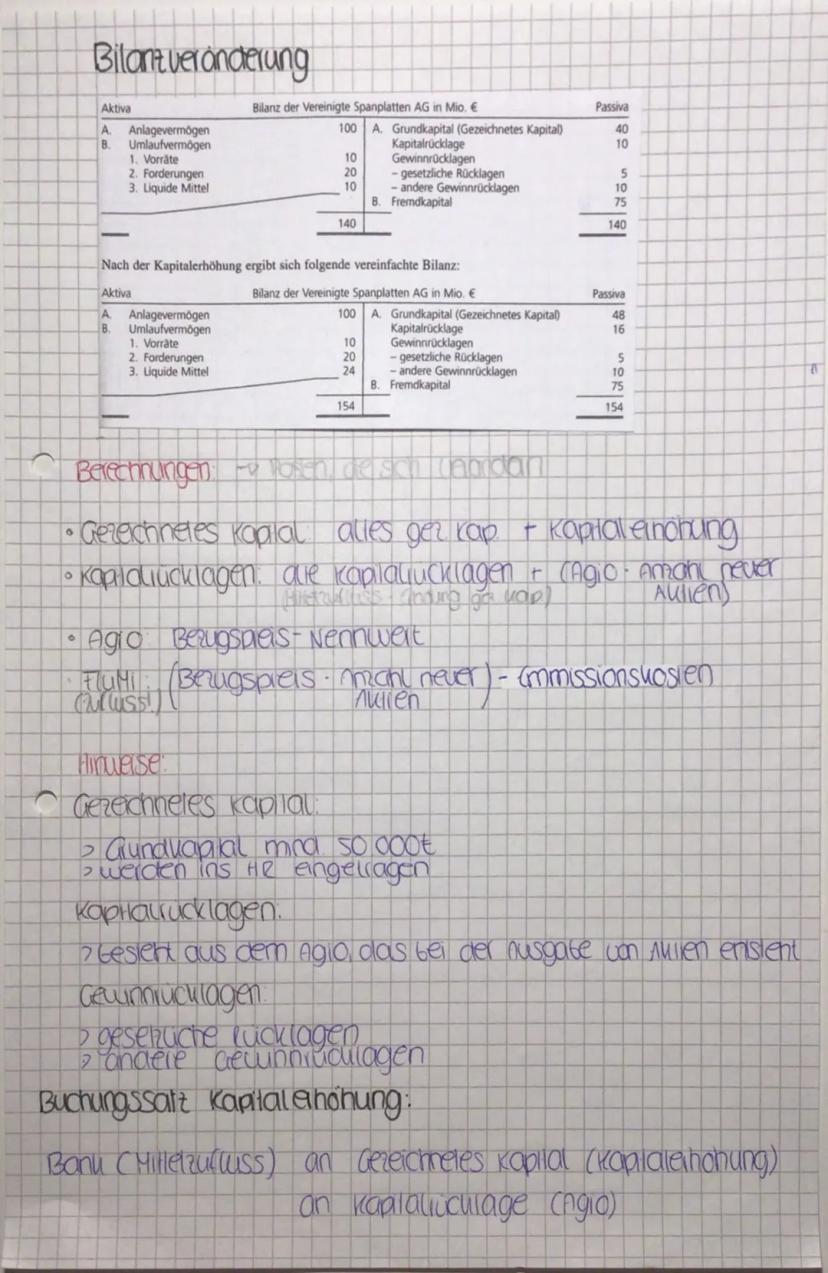 Bilanzveränderung
Aktiva Bilanz der Vereinigte Spanplatten AG in Mio. € Passiva
A. Anlagevermögen 100 A. Grundkapital (Gezeichnetes Kapital) 40
B. Umlaufvermögen Kapitalrücklage 10
1. Vorräte 10 Gewinnrücklagen
2. Forderungen 20 – gesetzliche Rücklagen 5
3. Liquide Mittel 10 – andere Gewinnrücklagen 10
B. Fremdkapital 75
140 140
Nach der Kapitalerhöhung ergibt sich folgende vereinfachte Bilanz:
Aktiva Bilanz der Vereinigte Spanplatten AG in Mio. € Passiva
A. Anlagevermögen 100 A. Grundkapital (Gezeichnetes Kapital) 48
B. Umlaufvermögen Kapitalrücklage 16
1. Vorräte 10 Gewinnrücklagen
2. Forderungen 20 – gesetzliche Rücklagen 5
3. Liquide Mittel 24 – andere Gewinnrücklagen 10
B. Fremdkapital 75
154 154
Berechnungen: → Posten, die sich
• Gezeichnetes Kapital: altes gez kap. + Kapitalerhöhung
• Kapitalrücklagen: alte Kapitalrücklagen + (Agio · Anzahl neuer
Aktien)
• Agio: Bezugspreis - Nennwert
• FlüMi: (Bezugspreis · Anzahl neuer) - Emmissionskosten
(Zufluss!) Aktien
Hinweise:
Gezeichnetes Kapital:
> Grundkapital mind 50 000€
> werden ins HR eingetragen
Kapitalrücklagen:
> besteht aus dem Agio, das bei der Ausgabe von Aktien entsteht
Gewinnrücklagen:
> gesetzliche Rücklagen
> andere Gewinnrücklagen
Buchungssatz Kapitalerhöhung:
Bank (Mittelzufluss) an Gezeichnetes Kapital (Kapitalerhöhung)
an Kapitalrücklage (Agio)